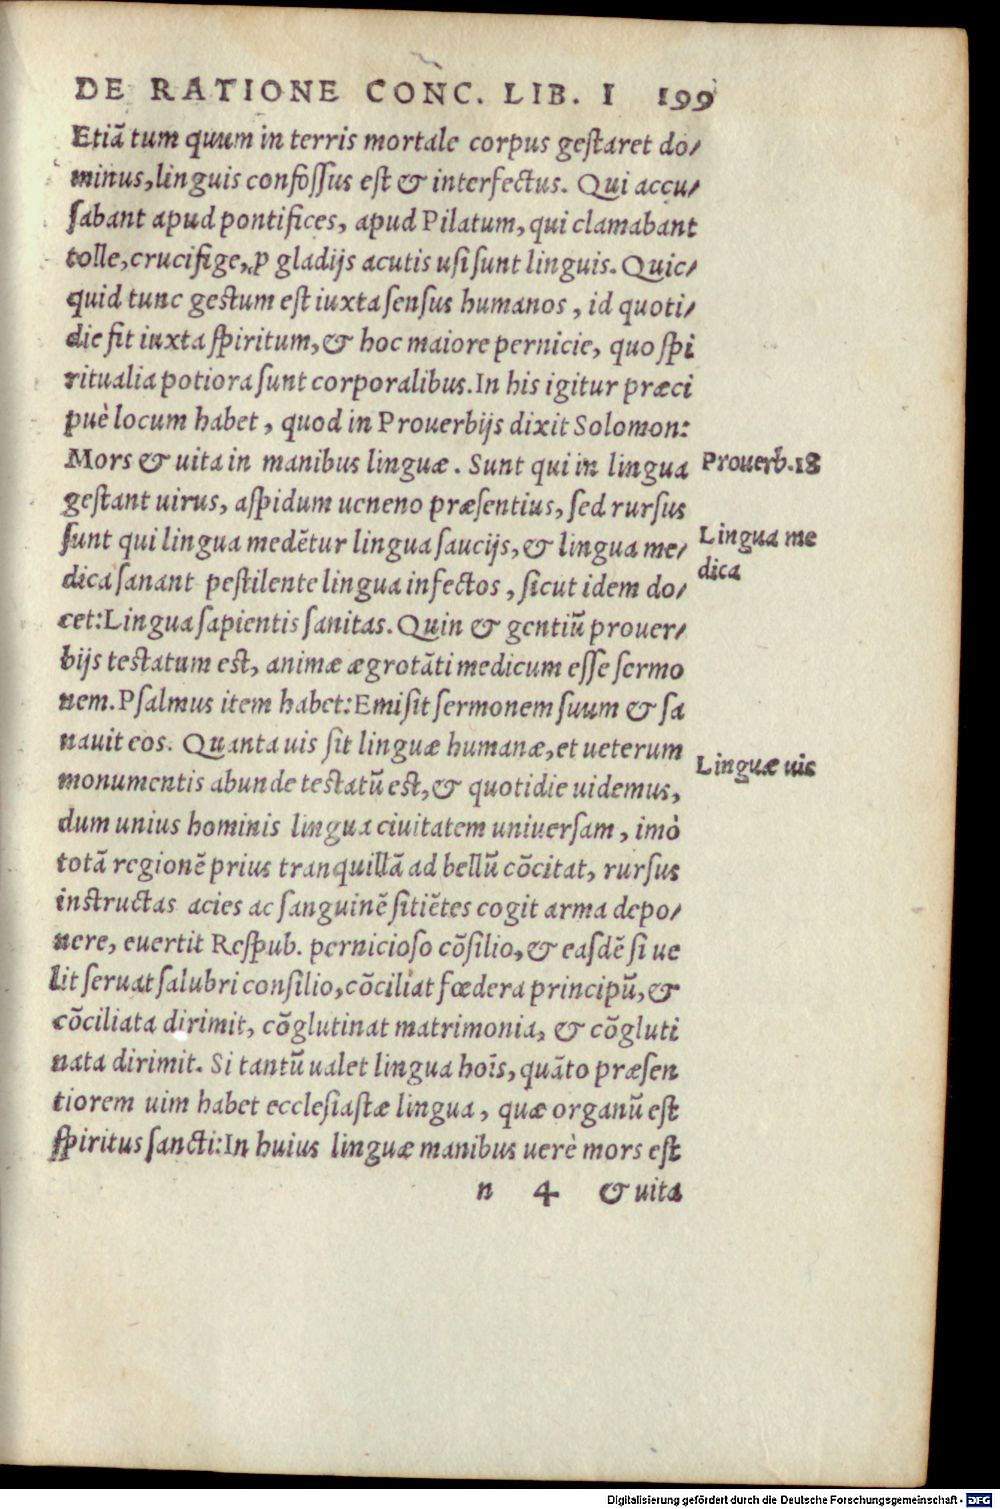 DE RATIONE CONC. LIB. I 199
Etiā tum quum in terris mortale corpus gestaret do⸗
minus, linguis confossus est & interfectus. Qui accu⸗
sabant apud pontifices, apud Pilatum, qui clamabant
tolle, crucifige, ꝓ gladijs acutis usi sunt linguis. Quic⸗
quid tunc gestum est iuxta sensus humanos, id quoti⸗
die fit iuxta spiritum, & hoc maiore pernicie, quo spi
ritualia potiora sunt corporalibus. In his igitur præci
puè locum habet, quod in Prouerbijs dixit Solomon:
Mors & uita in manibus linguæ. Sunt qui in lingua
Prouerb. 18
gestant uirus, aspidum ueneno præsentius, sed rursus
sunt qui lingua medētur lingua saucijs, & lingua me⸗
Lingua me
dica
dica sanant pestilente lingua infectos, sicut idem do⸗
cet: Lingua sapientis sanitas. Quin & gentiū prouer⸗
bijs testatum est, animæ ægrotāti medicum esse sermo
nem. Psalmus item habet: Emisit sermonem suum & sa
nauit eos. Quanta uis sit linguæ humanæ, et ueterum
Linguæ uis
monumentis abunde testatū est, & quotidie uidemus,
dum unius hominis lingua ciuitatem uniuersam, imò
totā regionē prius tranquillā ad bellū cōcitat, rursus
instructas acies ac sanguinē sitiētes cogit arma depo⸗
nere, euertit Respub. pernicioso cōsilio, & easdē si ue
lit seruat salubri consilio, cōciliat fœdera principū, &
cōciliata dirimit, cōglutinat matrimonia, & cōgluti
nata dirimit. Si tantū ualet lingua hoīs, quāto præsen
tiorem uim habet ecclesiastæ lingua, quæ organū est
spiritus sancti: In huius linguæ manibus uerè mors est
n 4 & uita
Digitalisierung gefördert durch die Deutsche Forschungsgemeinschaft - DFG